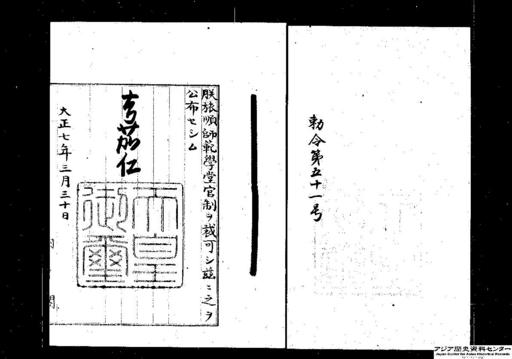 勅令第五十一号
朕旅順師範學堂官制ヲ裁可シ茲ニ之ヲ
公布セシム
嘉仁
天皇
御璽
大正七年三月三十日
アジア歴史資料センター
Japan Center for Asian Historical Records